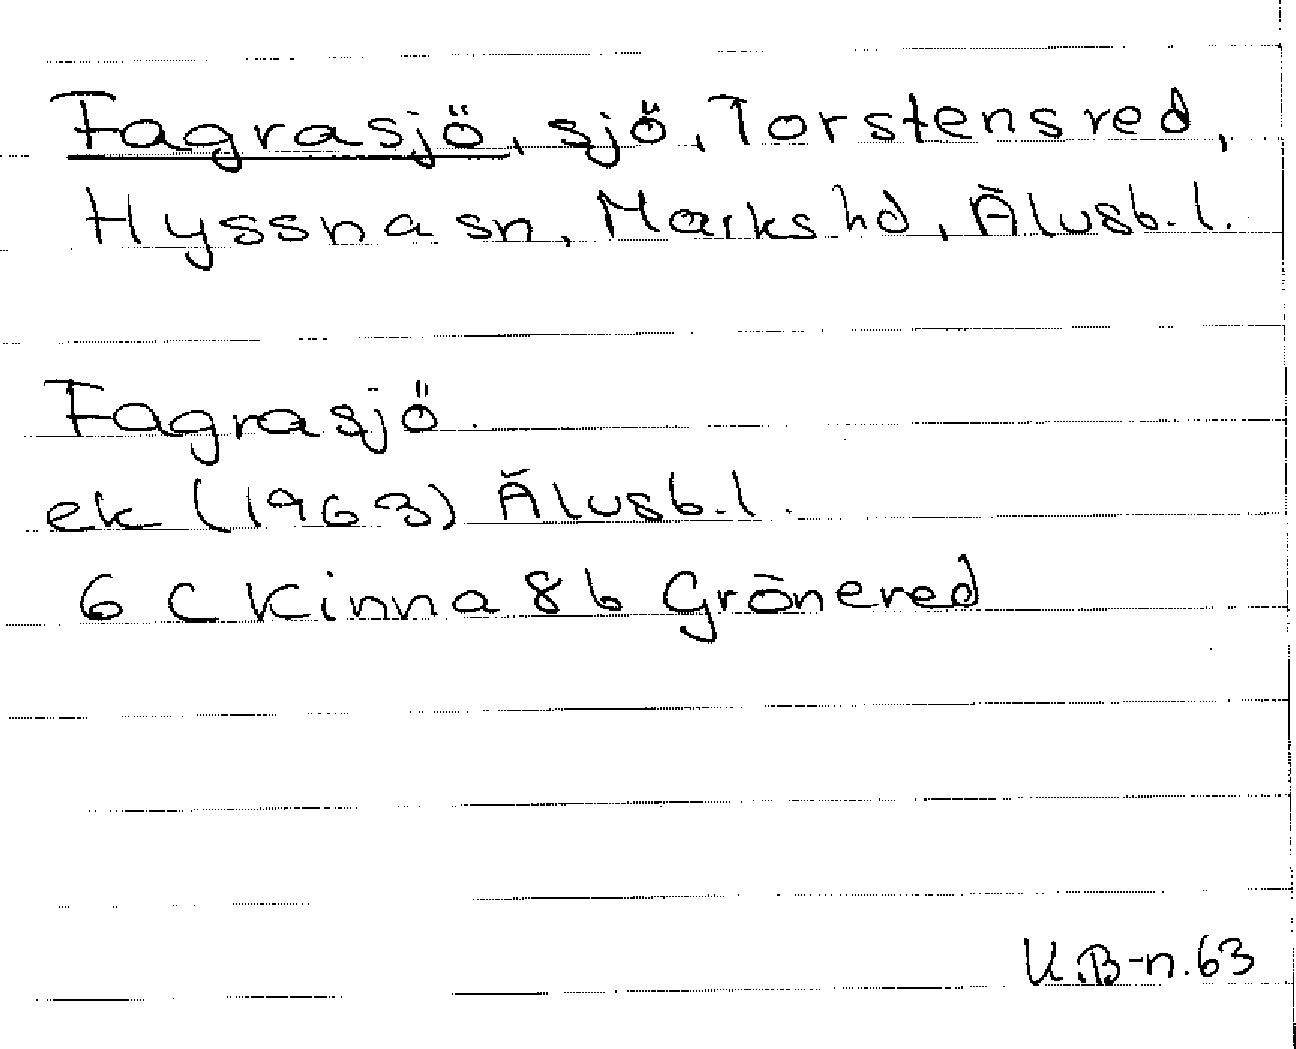 Fagrasjö, sjö, Torstensred,
Hyssna sn, Marks hd, Älvsb. l.
Fagrasjö
ek (1963) Älvsb. l.
6 C Kinna 8b Grönered
U.B-n.63